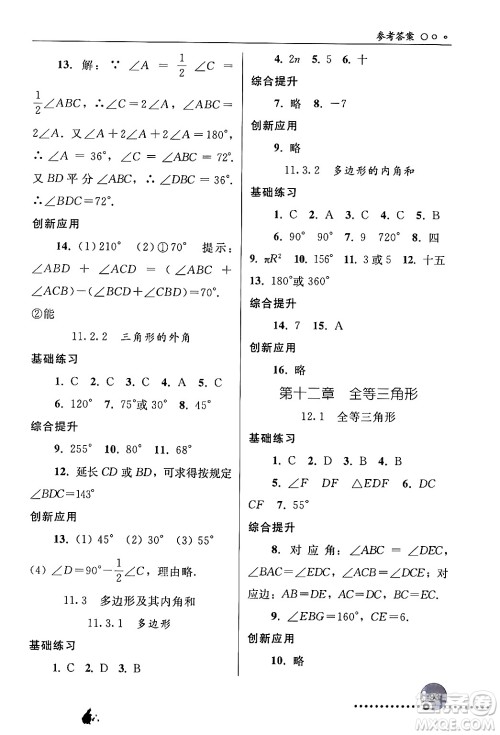 参考答案
13. 解：∵ ∠A = 1/2 ∠C =
1/2 ∠ABC，∴ ∠C = ∠ABC =
2∠A. ∴ ∠A + 2∠A + 2∠A = 180°，
∴ ∠A = 36°，∠C = ∠ABC = 72°.
又 BD 平分 ∠ABC，∴ ∠DBC = 36°，
∴ ∠BDC=72°.
创新应用
14. (1) 210° (2) ①70° 提示：
∠ABD + ∠ACD = (∠ABC +
∠ACB) - (∠DBC + ∠DCB) = 70°.
②能
11.2.2 三角形的外角
基础练习
1. C 2. D 3. C 4. D 5. A
6. C 7. 120° 8. 75°或 30° 12. 45°
综合提升
9. 255° 10. 80° 11. 68°
12. 延长 CD 或 BD，可求得得
∠BDC=143°
创新应用
13. (1) 45° (2) 45° (3) 45°
(4) ∠D=90°-1/2∠C，理由略.
11.3 多边形及其内角和
11.3.1 多边形
基础练习
1. C 2. D 3. A
4. 2n 5. 5 6. 十
综合提升
7. 略 8. -7
创新应用
9. 略
11.3.2 多边形的内角和
基础练习
1. C 2. B 3. A 4. A 5. C
6. 90° 90° 7. 90° 8. 四
9. πR² 10. 156° 11. 3 或 5 12. 十五
13. 180°或 360°
综合提升
14. 7 15. A
创新应用
16. 略
第十二章 全等三角形
12.1 全等三角形
基础练习
1. C 2. D 3. B 4. A
5. ∠F 6. 55° △EDF DC
CF 7. 55°
综合提升
8. 对应角：∠ABC = ∠DEC，
∠BAC = ∠EDC，∠ACB = ∠DCE. 对
应边：AB=DE，AC=DC，BC=EC.
9. ∠EBG=160°，CE=6.
创新应用
10. 略